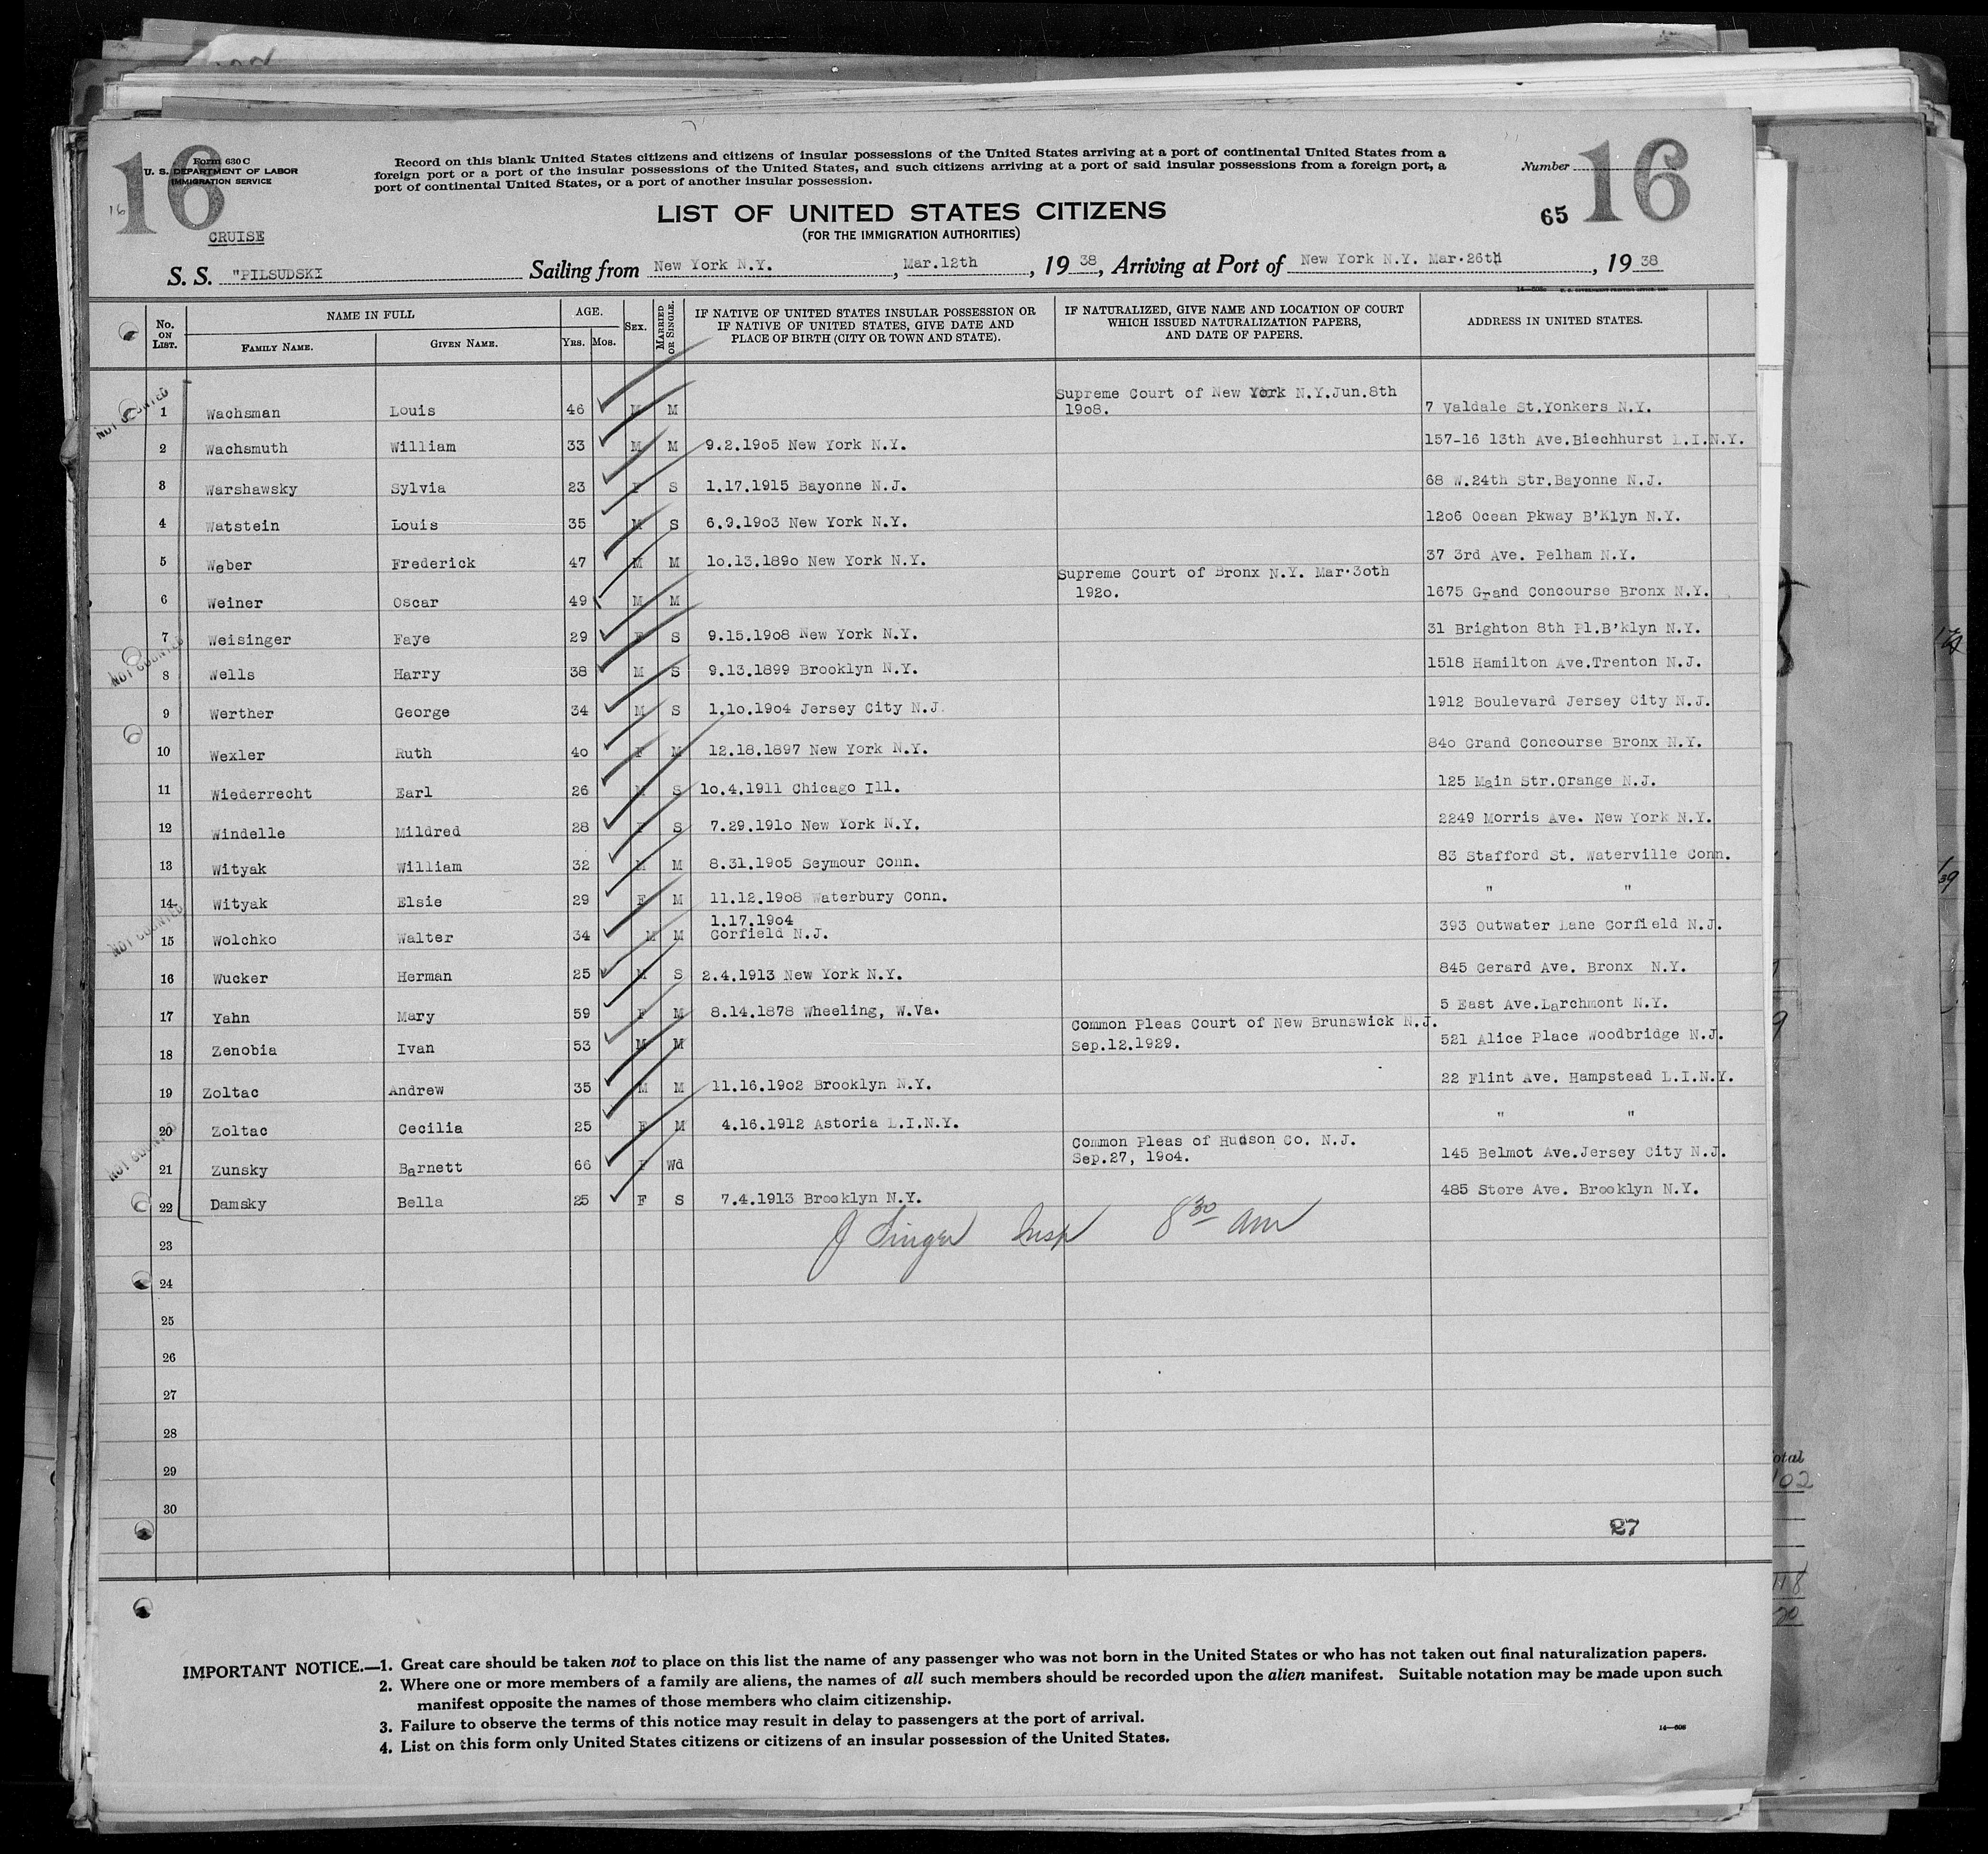 16
Form 630 C
U. S. DEPARTMENT OF LABOR
IMMIGRATION SERVICE
16
CRUISE
Record on this blank United States citizens and citizens of insular possessions of the United States arriving at a port of continental United States from a
foreign port or a port of the insular possessions of the United States, and such citizens arriving at a port of said insular possessions from a foreign port, a
port of continental United States, or a port of another insular possession.
Number
16
LIST OF UNITED STATES CITIZENS
(FOR THE IMMIGRATION AUTHORITIES)
65
S. S. "PILSUDSKI Sailing from New York N.Y. , Mar.12th , 19 38, Arriving at Port of New York N.Y. Mar.26th , 19 38
No. ON LIST. NAME IN FULL FAMILY NAME. GIVEN NAME. AGE. YRS. MOS. SEX. MARRIED OR SINGLE. IF NATIVE OF UNITED STATES INSULAR POSSESSION OR IF NATIVE OF UNITED STATES, GIVE DATE AND PLACE OF BIRTH (CITY OR TOWN AND STATE). IF NATURALIZED, GIVE NAME AND LOCATION OF COURT WHICH ISSUED NATURALIZATION PAPERS, AND DATE OF PAPERS. ADDRESS IN UNITED STATES.
NOT COUNTED
1 Wachsman Louis 46 M M Supreme Court of New York N.Y.Jun.8th 1908. 7 Valdale St.Yonkers N.Y.
2 Wachsmuth William 33 M M 9.2.1905 New York N.Y. 157-16 13th Ave.Biechhurst L.I.N.Y.
3 Warshawsky Sylvia 23 F S 1.17.1915 Bayonne N.J. 68 W.24th Str.Bayonne N.J.
4 Watstein Louis 35 M S 6.9.1903 New York N.Y. 1206 Ocean Pkway B'Klyn N.Y.
5 Weber Frederick 47 M M 10.13.1890 New York N.Y. 37 3rd Ave. Pelham N.Y.
6 Weiner Oscar 49 M M Supreme Court of Bronx N.Y. Mar.30th 1920. 1675 Grand Concourse Bronx N.Y.
7 Weisinger Faye 29 F S 9.15.1908 New York N.Y. 31 Brighton 8th Pl.B'klyn N.Y.
NOT COUNTED
8 Wells Harry 38 M S 9.13.1899 Brooklyn N.Y. 1518 Hamilton Ave.Trenton N.J.
9 Werther George 34 M S 1.10.1904 Jersey City N.J. 1912 Boulevard Jersey City N.J.
10 Wexler Ruth 40 F M 12.18.1897 New York N.Y. 840 Grand Concourse Bronx N.Y.
11 Wiederrecht Earl 26 M S 10.4.1911 Chicago Ill. 125 Main Str.Orange N.J.
12 Windelle Mildred 28 F S 7.29.1910 New York N.Y. 2249 Morris Ave. New York N.Y.
13 Wityak William 32 M M 8.31.1905 Seymour Conn. 83 Stafford St. Waterville Conn.
14 Wityak Elsie 29 F M 11.12.1908 Waterbury Conn. " "
NOT COUNTED
15 Wolchko Walter 34 M M 1.17.1904 Gorfield N.J. 393 Outwater Lane Gorfield N.J.
16 Wucker Herman 25 M S 2.4.1913 New York N.Y. 845 Gerard Ave. Bronx N.Y.
17 Yahn Mary 59 F M 8.14.1878 Wheeling, W.Va. 5 East Ave.Larchmont N.Y.
18 Zenobia Ivan 53 M M Common Pleas Court of New Brunswick N.J. Sep.12.1929. 521 Alice Place Woodbridge N.J.
19 Zoltac Andrew 35 M M 11.16.1902 Brooklyn N.Y. 22 Flint Ave. Hampstead L.I.N.Y.
20 Zoltac Cecilia 25 F M 4.16.1912 Astoria L.I.N.Y. " "
NOT COUNTED
21 Zunsky Barnett 66 F Wd Common Pleas of Hudson Co. N.J. Sep.27, 1904. 145 Belmot Ave.Jersey City N.J.
22 Damsky Bella 25 F S 7.4.1913 Brooklyn N.Y. 485 Store Ave. Brooklyn N.Y.
J Singer Insp 8 30 am
23
24
25
26
27
28
29
30
27
IMPORTANT NOTICE.—1. Great care should be taken not to place on this list the name of any passenger who was not born in the United States or who has not taken out final naturalization papers.
2. Where one or more members of a family are aliens, the names of all such members should be recorded upon the alien manifest. Suitable notation may be made upon such
manifest opposite the names of those members who claim citizenship.
3. Failure to observe the terms of this notice may result in delay to passengers at the port of arrival.
4. List on this form only United States citizens or citizens of an insular possession of the United States.
14—608